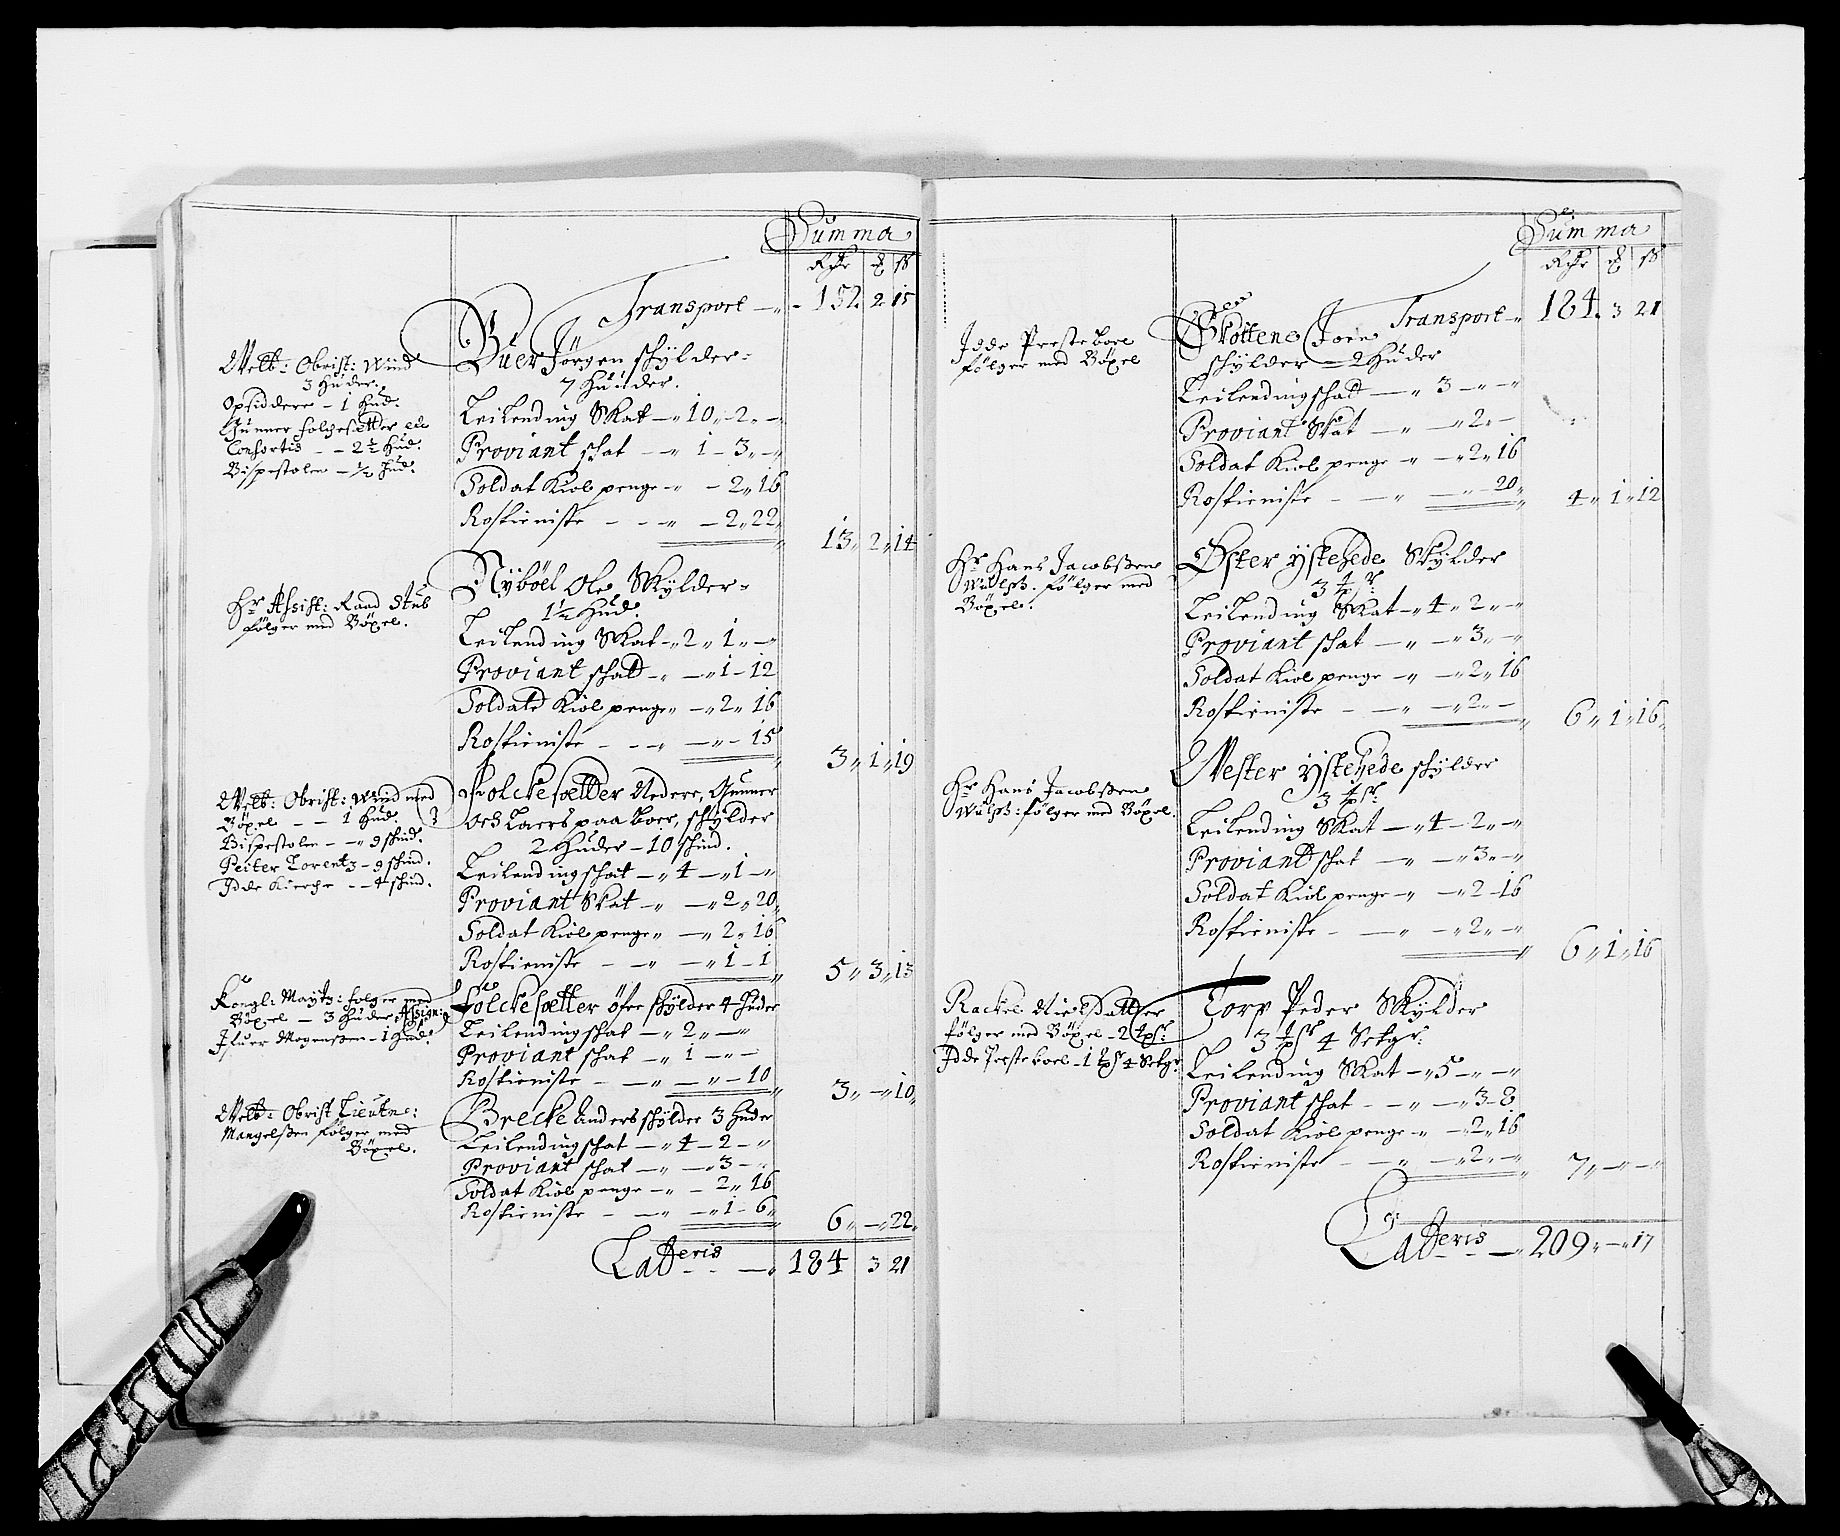 Summa
Rdr | ₰ | ß
Transport — „ - 152. 2. 15
Welb: Obrist: Wind
3 Huder.
Opsiddere - 1 Hud.
Gunner folchesetter etc
Consortis - - 2½ Hud.
Bispestolen - ½ Hud.
Buer Jörgen schylder -
7 Huuder.
Leilending Skat - „ 10. - 2. -
Proviant schat - „ 1 - 3. -
Soldat Kiolpenge - „ - 2. 16
Rostieniste - - „ - 2. 22.
13. 2. 14
Hr Assist: Raad Stub
følger med Böxel.
Nyböel Ole Skylder -
1½ Hud.
Leilending Skat - „ 2 „ 1 „ -
Proviant schatt - „ - „ 1 - 12
Soldatt Kiolpenge „ - „ 2 „ 16
Rostieniste - - „ - „ - 15
3 „ 1 „ 19
Welb: Obrist: Wind med
Böxel - - 1 Hud.
Bispestolen - - „ 9 schind.
Peiter Lorentz - 9 schind.
Idde Kierche - - 4 schind.
Folckesetter Nedere, Gunner
och Laers paa boer, schylder
2 Huder - 10 schind.
Leilending schat - „ 4 - „ 1 - „
Proviant Skat - „ - „ 2 „ 20
Soldat Kiolpenge „ - „ 2 „ 16
Rostieniste - - „ - „ 1 - 1
5 „ 3 „ 13
Kongl: Mayts: følger med
Böxel - 3 Huder Assign:
Ifuer Mogenssen - 1 Hud.
Folckesetter öfre schylder 4 Huder
Leilending schat - „ 2 „ - „
Proviant schat - „ 1 - „ -
Rostieniste - - „ - „ - 10
3 „ - „ 10
Welb: Obrist Lieutne:
Mangelssen følger med
Böxel.
Brecke Anders schylder 3 Huder
Leilending schat - „ 4 - 2 - „
Proviant schat - „ - „ 3 - „
Soldat Kiolpenge - „ - 2 „ 16
Rostieniste - - „ - „ 1 - 6
6 „ - „ 22
Latteris - - - „ 184 3 21
Summa
Rdr | ₰ | ß
Transport „ 184. 3 21
Idde Presteboel
følger med Böxel
Skottene Joen
schylder - 2 Huder
Leilending schatt - „ 3 - „ - „
Proviant Skat - „ - „ 2 „ -
Soldat Kiolpenge „ - „ 2 „ 16
Rostieniste - - „ - „ - 20
4 „ 1 „ 12
Hr Hans Jacobssen
Wulfs: følger med
Böxel.
Öster ystehede Skylder
3 tpsr:
Leilending Skat - „ 4 „ 2 „ - „
Proviant schat - „ - „ 3 „ - „
Soldat Kiolpenge - „ - „ 2 „ 16
Rostieniste - - „ - „ 2 „ -
6 „ 1 „ 16
Hr Hans Jacobssen
Wulfs: følger med Böxel.
Wester ystehede schylder
3 tpsr:
Leilending Skat - „ 4 - 2 „ - „
Proviant schat - „ - „ 3 „ - „
Soldat Kiolpenge - „ - „ 2 - 16
Rostieniste - - „ - „ 2 „ - „
6 „ 1 „ 16
Rackel Nielsdatter
følger med Böxel - 2 tpsr:
Idde Presteboel - 1 tpsr 4 Setgr.
Torp Peder Skylder
3 tpsr 4 Setgr:
Leilending Skat - „ 5 - „ - „
Proviant schat - - „ - „ 3 - 8
Soldat Kiolpenge „ - „ 2 „ 16
Rostieniste - - „ - „ 2 „ - „
7 „ - „ -
Latteris - „ 209 „ - „ 17